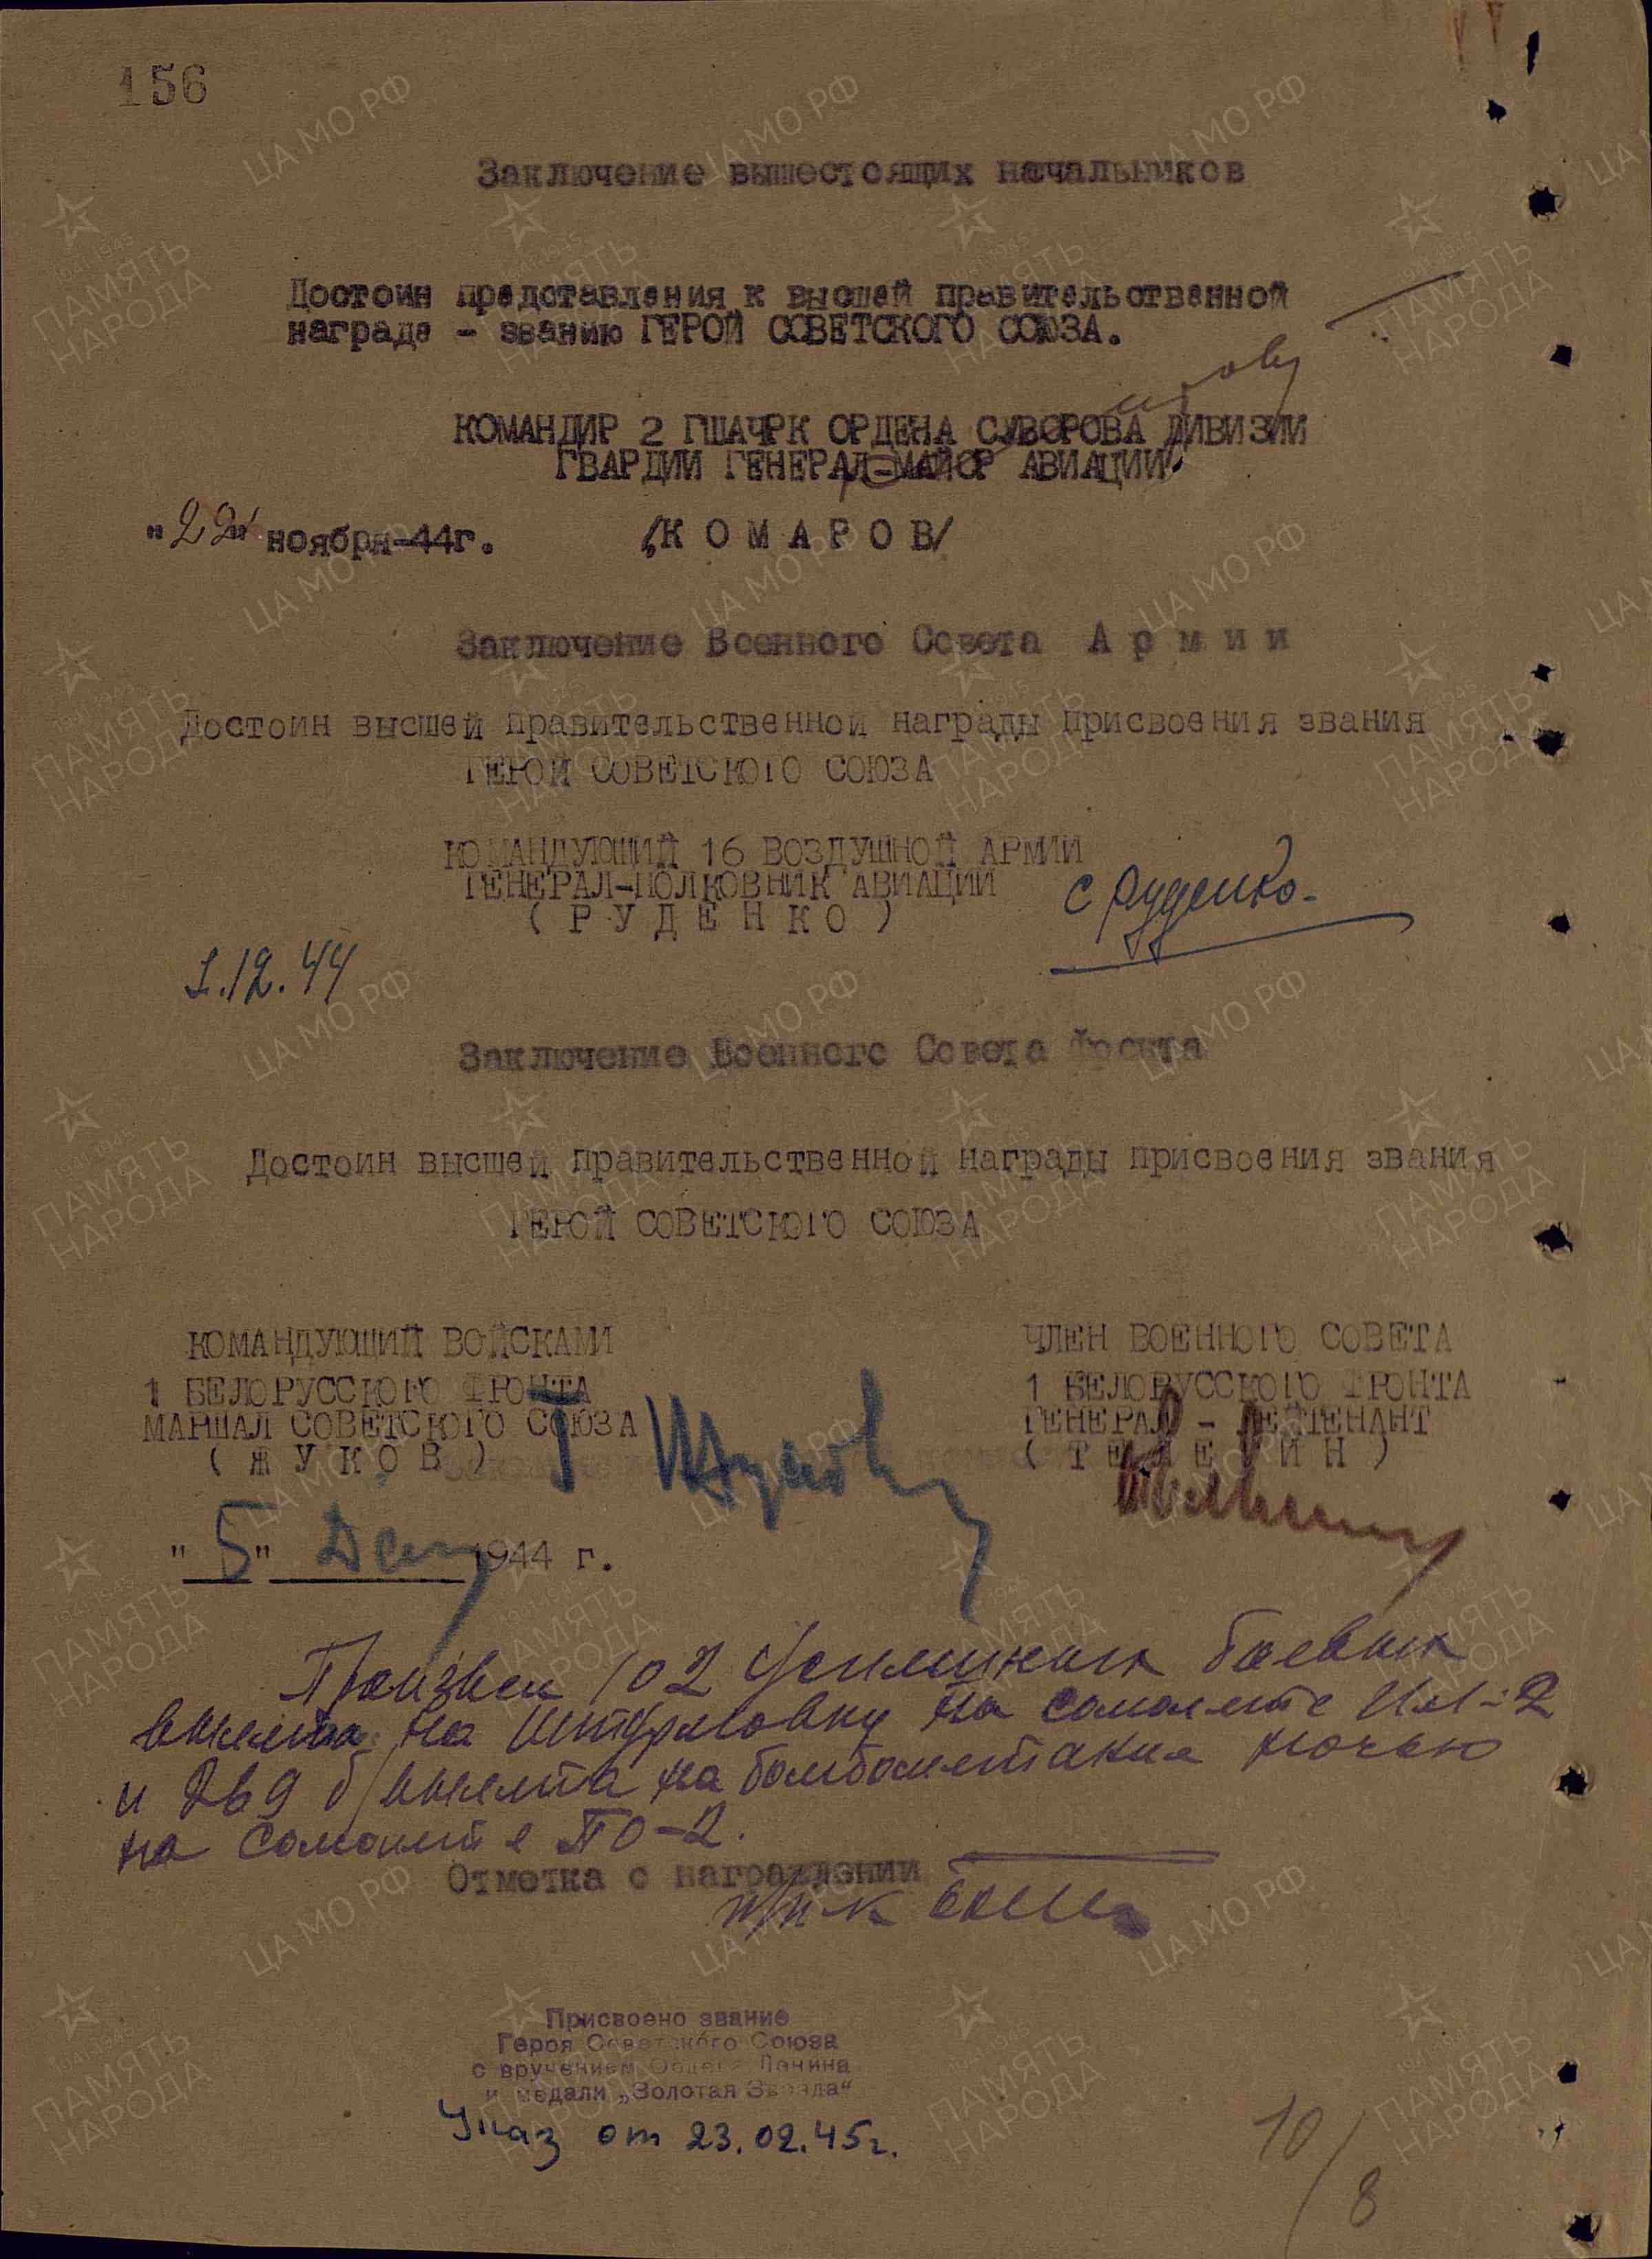 156
Заключение вышестоящих начальников
Достоин представления к высшей правительственной
награде - званию ГЕРОЙ СОВЕТСКОГО СОЮЗА.
КОМАНДИР 2 ГШАЧРК ОРДЕНА СУВОРОВА ДИВИЗИИ
ГВАРДИИ ГЕНЕРАЛ-МАЙОР АВИАЦИИ
"22" ноября-44г. /КОМАРОВ/
Заключение Военного Совета Армии
Достоин высшей правительственной награды присвоения звания
ГЕРОЙ СОВЕТСКОГО СОЮЗА
КОМАНДУЮЩИЙ 16 ВОЗДУШНОЙ АРМИИ
ГЕНЕРАЛ-ПОЛКОВНИК АВИАЦИИ
(РУДЕНКО) С Руденко
1.12.44
Заключение Военного Совета Фронта
Достоин высшей правительственной награды присвоения звания
ГЕРОЙ СОВЕТСКОГО СОЮЗА
КОМАНДУЮЩИЙ ВОЙСКАМИ
1 БЕЛОРУССКОГО ФРОНТА
МАРШАЛ СОВЕТСКОГО СОЮЗА
(ЖУКОВ) Г Жуков
ЧЛЕН ВОЕННОГО СОВЕТА
1 БЕЛОРУССКОГО ФРОНТА
ГЕНЕРАЛ - ЛЕЙТЕНАНТ
(ТЕЛЕГИН)
"5" Дек 1944 г.
Произвел 102 успешных боевых
вылета на штурмовку на самолете Ил-2
и 269 б/вылета на бомбометание ночью
на самолете ПО-2.
Отметка о награждении
п/п-к
Присвоено звание
Героя Советского Союза
с вручением Ордена Ленина
и медали „Золотая Звезда“
Указ от 23.02.45г.
10/8
ЦА МО РФ
ПАМЯТЬ
НАРОДА
1941-1945